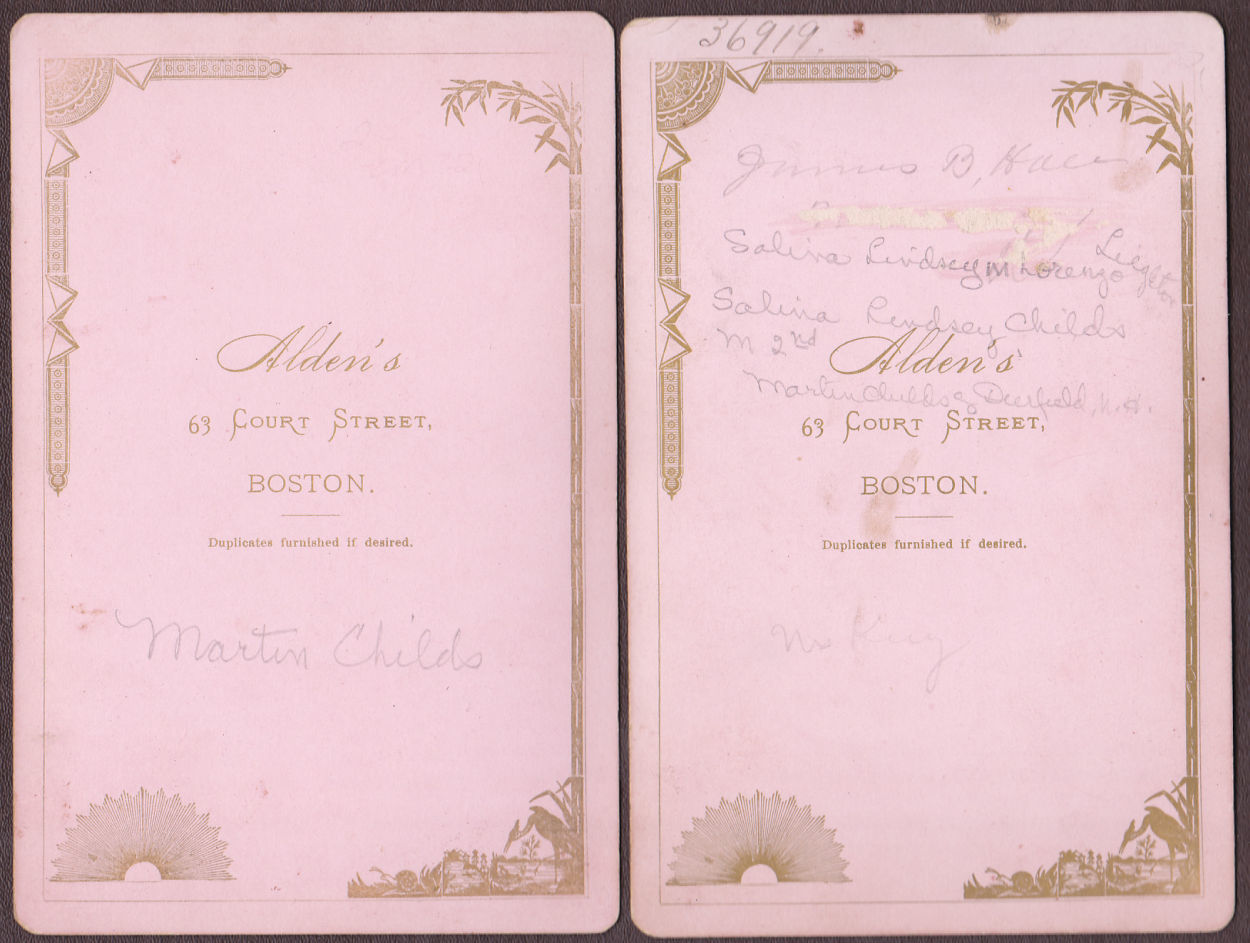 Alden's
63 Court Street,
BOSTON.
Duplicates furnished if desired.
Martin Childs
36919.
James B.
Salina Lindsey m Lorenzo
Salina Lindsey Childs
m 2nd
Alden's
Martin Childs of Deerfield, N.H.
63 Court Street,
BOSTON.
Duplicates furnished if desired.